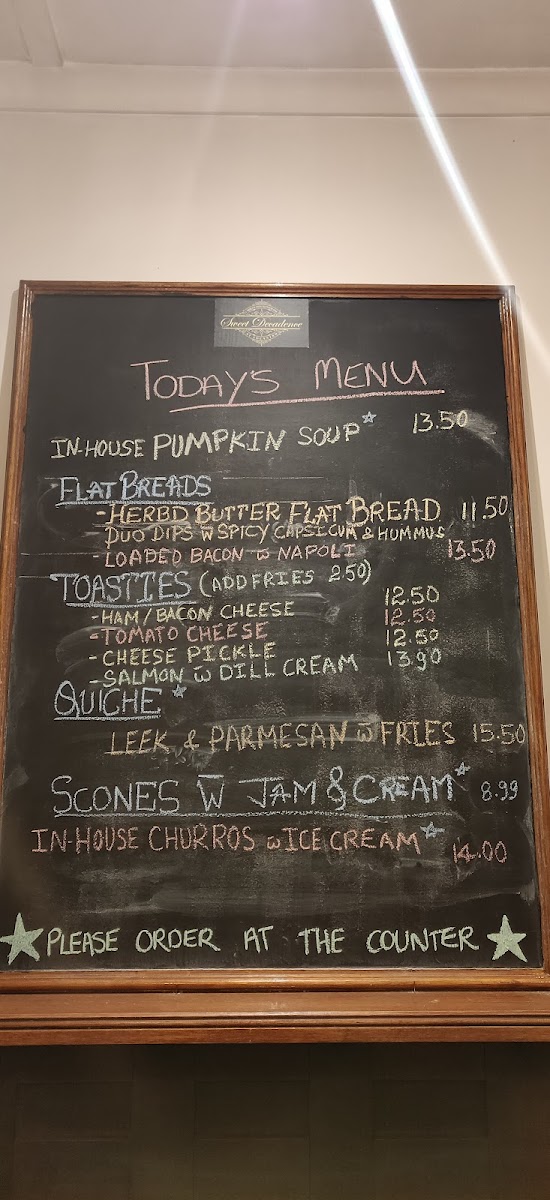 Sweet Decadence
TODAY'S MENU
IN-HOUSE PUMPKIN SOUP☆ 13.50
FLAT BREADS
- HERBD BUTTER FLAT BREAD 11.50
DUO DIPS W SPICY CAPSICUM & HUMMUS
- LOADED BACON W NAPOLI 13.50
TOASTIES (ADD FRIES 2.50)
- HAM/BACON CHEESE 12.50
- TOMATO CHEESE 12.50
- CHEESE PICKLE 12.50
- SALMON W DILL CREAM 13.90
QUICHE ☆
LEEK & PARMESAN W FRIES 15.50
SCONES W JAM & CREAM☆ 8.99
IN-HOUSE CHURROS W ICE CREAM☆ 14.00
★ PLEASE ORDER AT THE COUNTER ★